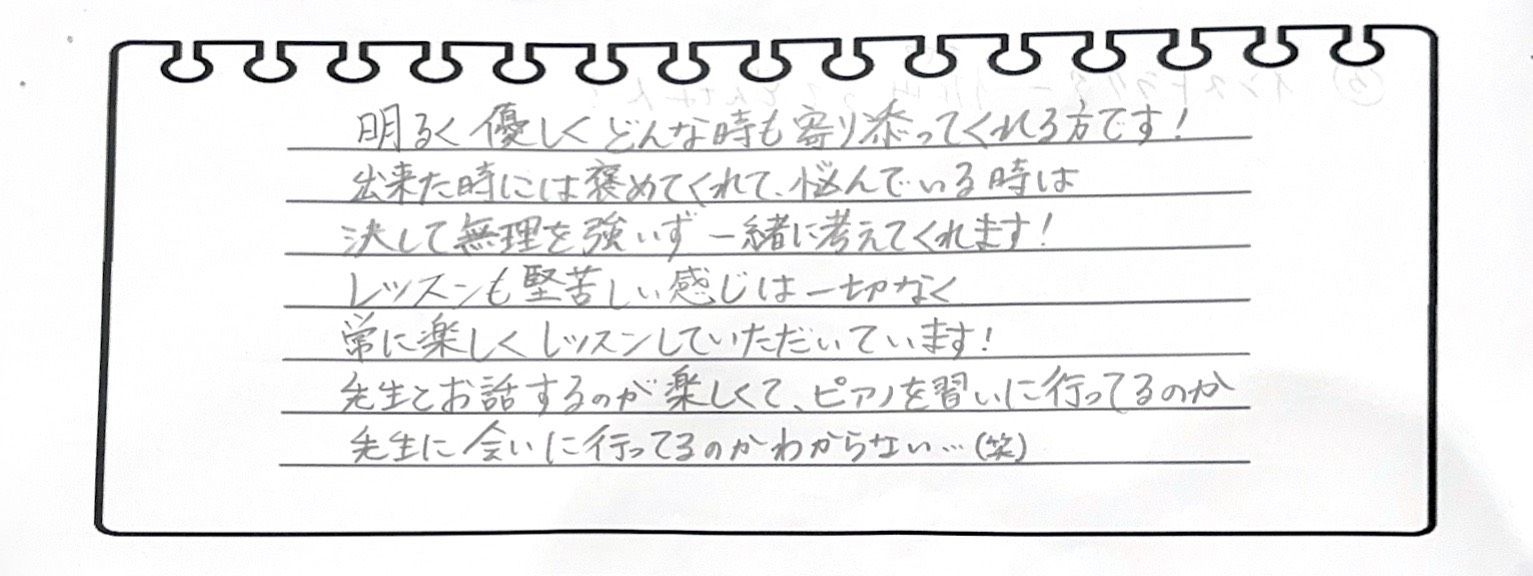 明るく優しくどんな時も寄り添ってくれる方です！
出来た時には褒めてくれて、悩んでいる時は
決して無理を強いず一緒に考えてくれます！
レッスンも堅苦しい感じは一切なく
常に楽しくレッスンしていただいています！
先生とお話するのが楽しくて、ピアノを習いに行ってるのか
先生に会いに行ってるのかわからない…(笑)